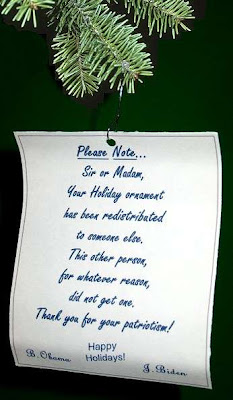 Please Note...
Sir or Madam,
Your Holiday ornament
has been redistributed
to someone else.
This other person,
for whatever reason,
did not get one.
Thank you for your patriotism!
Happy
Holidays!
B. Obama
J. Biden